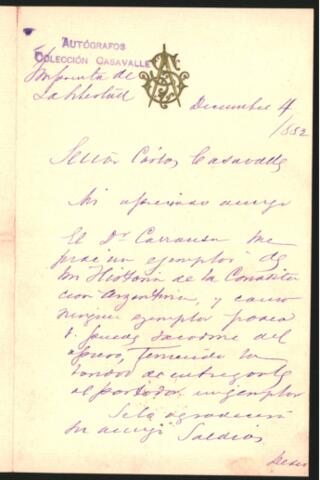 AUTÓGRAFOS
COLECCIÓN CASAVALLE
Imprenta de
La Libertad
Decembre 4
/882
Señor Cárlos Casavalle
Mi apreciado amigo
El Dr Carranza me
pide un ejemplar de
mi Historia de la Constitu
cion Argentina, y como
ningun ejemplar poseo
V. puede sacarme del
apuro, teniendo la
bondad de entregarle
al portador un ejemplar
Se lo agradecerá
su amigo Saldías